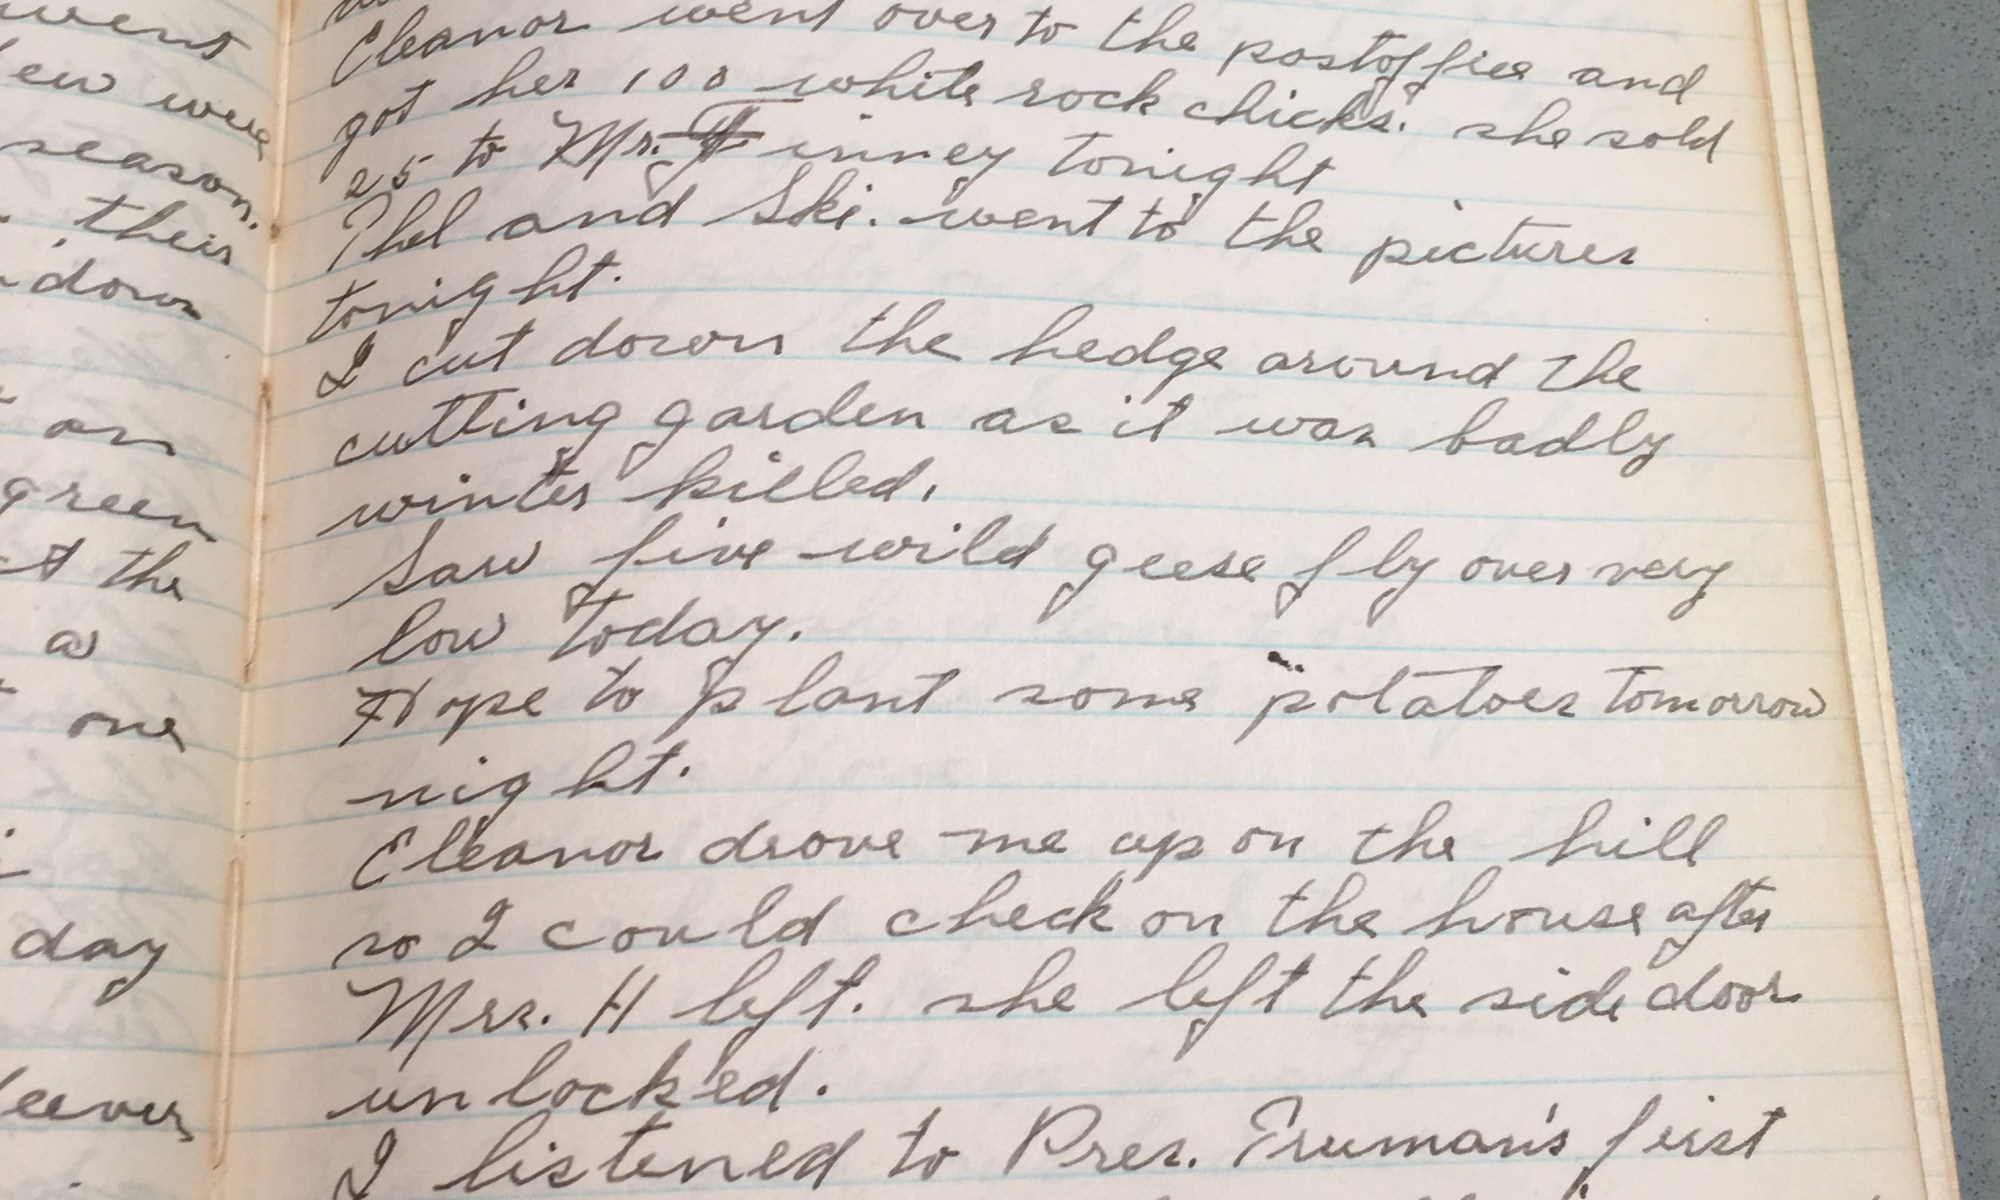 went
ew were
season.
their
down
on
green
t the
a
one
day
Eleanor went over to the postoffice and
got her 100 white rock chicks. she sold
25 to Mr. Finney tonight
Phel and Ski. went to the pictures
tonight.
I cut down the hedge around the
cutting garden as it was badly
winter killed.
Saw five wild geese fly over very
low today.
Hope to plant some potatoes tomorrow
night.
Eleanor drove me up on the hill
so I could check on the house after
Mrs. H left. she left the side door
unlocked.
I listened to Pres. Truman's first